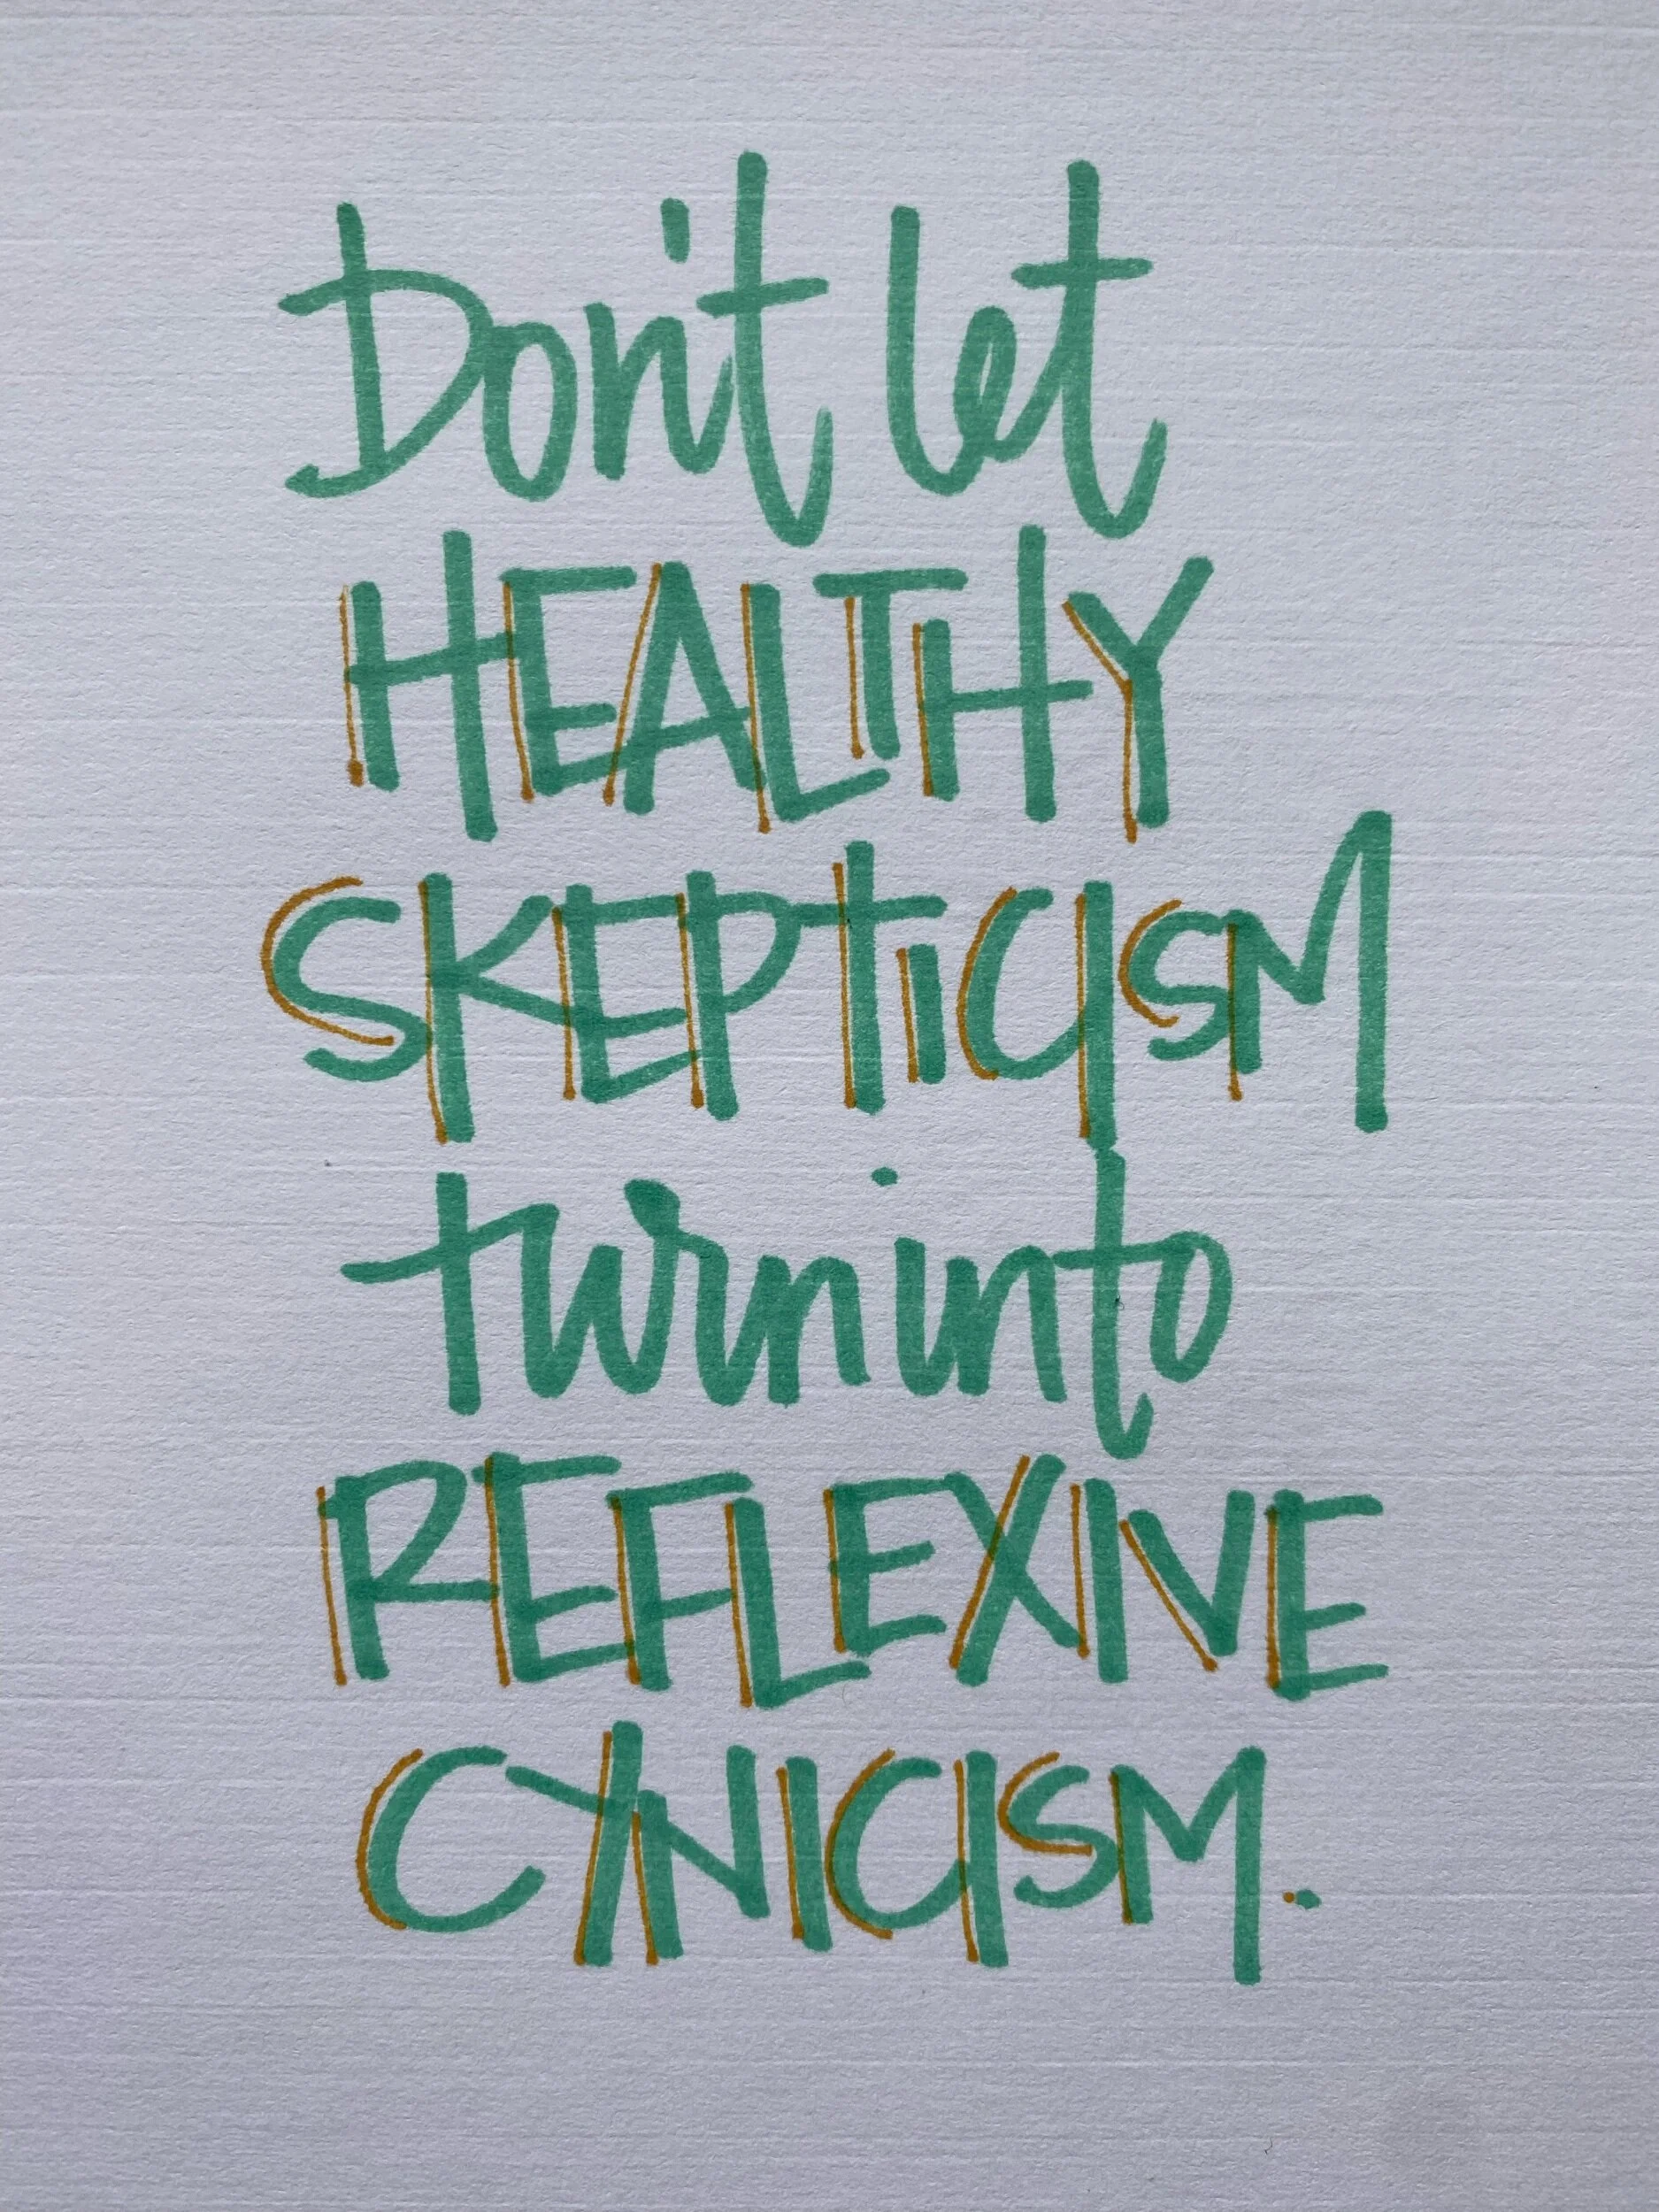 Don't let
HEALTHY
SKEPTICISM
turn into
REFLEXIVE
CYNICISM.